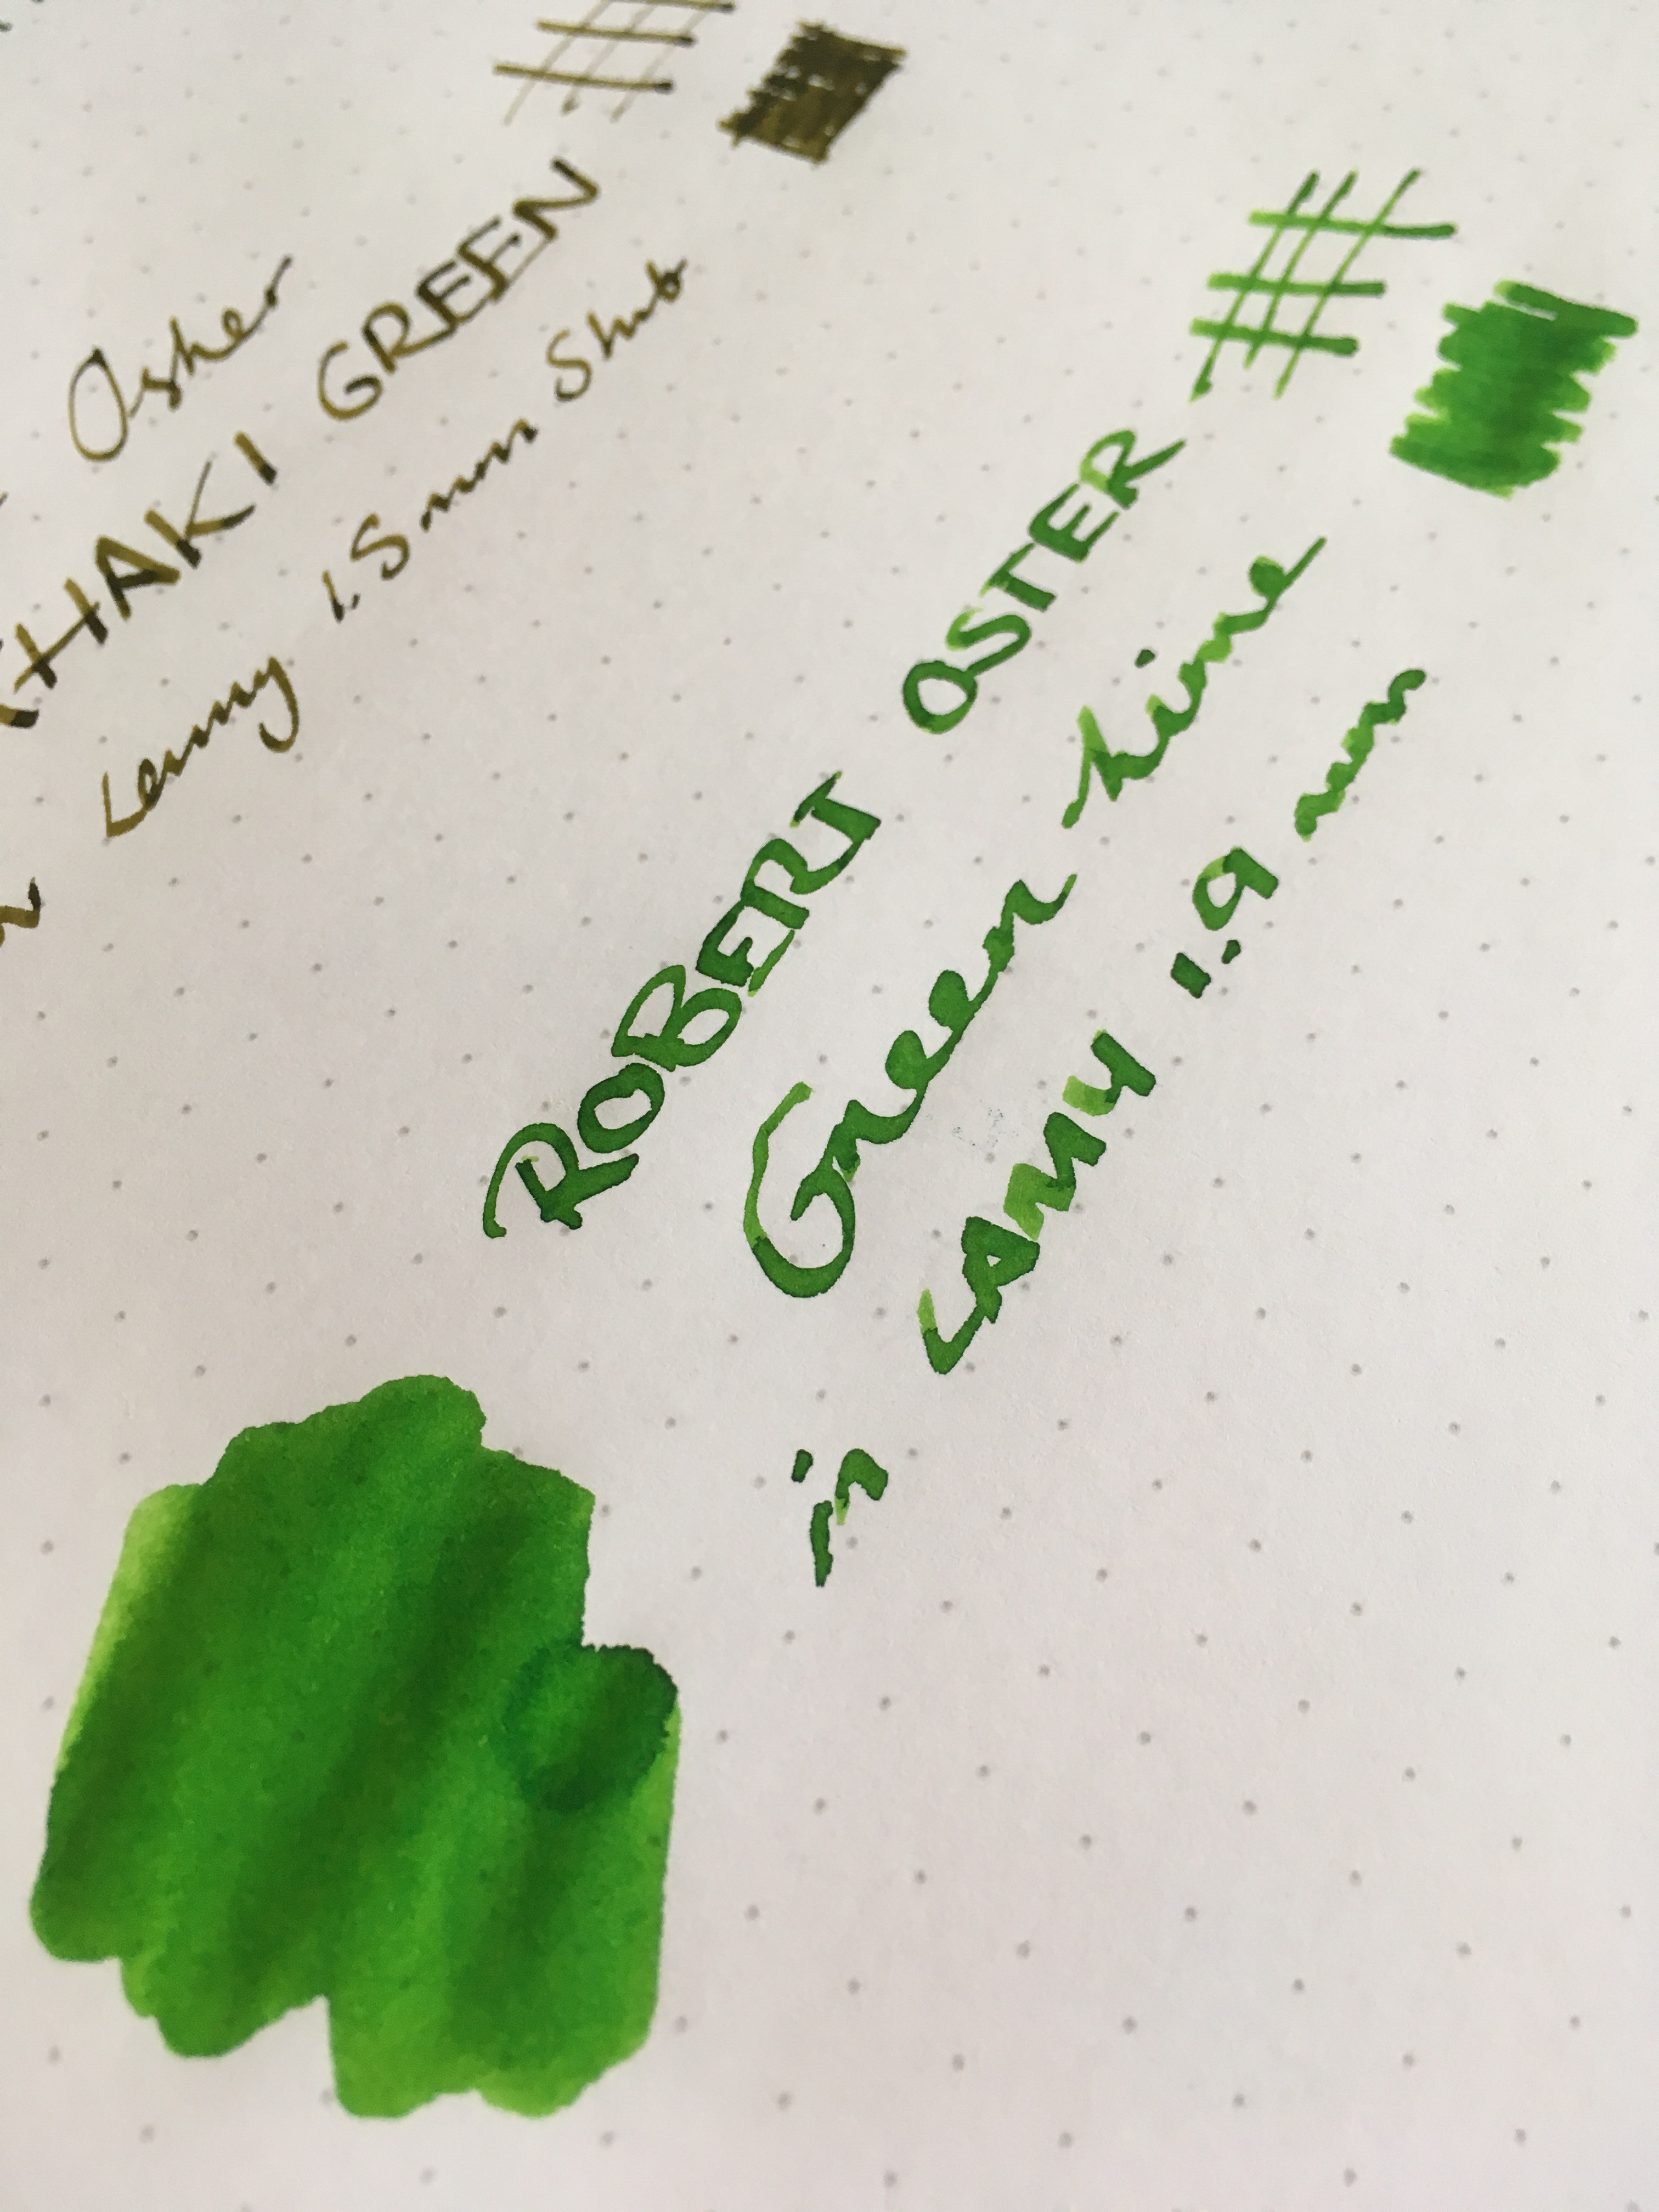 Osher
KHAKI GREEN
Lenny 1.5mm Stub
ROBERT OSTER
Green Lime
in LAMY 1.9 mm